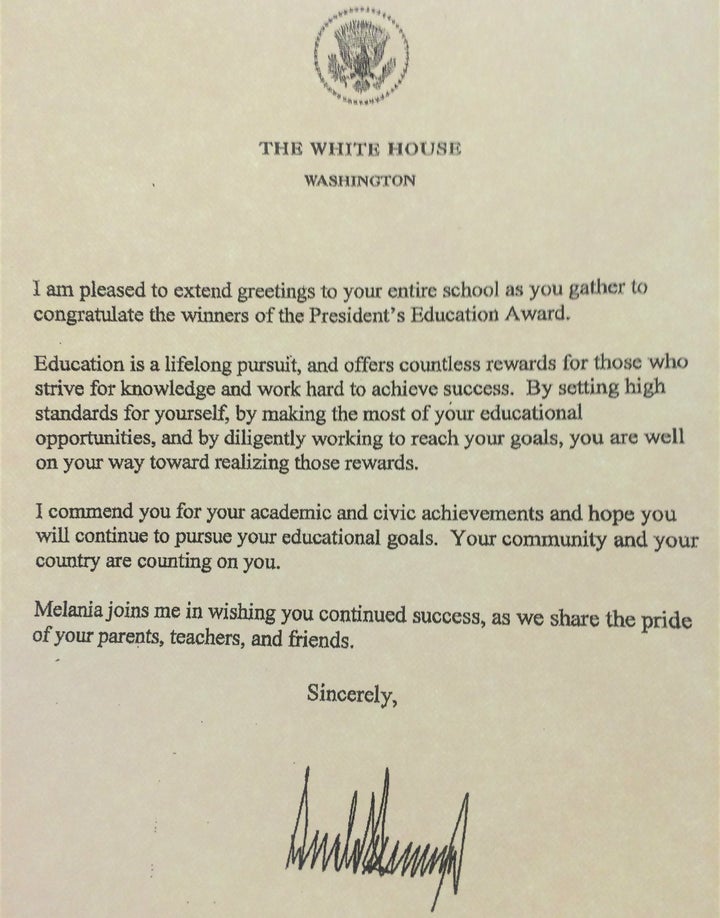 THE WHITE HOUSE
WASHINGTON
I am pleased to extend greetings to your entire school as you gather to
congratulate the winners of the President's Education Award.
Education is a lifelong pursuit, and offers countless rewards for those who
strive for knowledge and work hard to achieve success. By setting high
standards for yourself, by making the most of your educational
opportunities, and by diligently working to reach your goals, you are well
on your way toward realizing those rewards.
I commend you for your academic and civic achievements and hope you
will continue to pursue your educational goals. Your community and your
country are counting on you.
Melania joins me in wishing you continued success, as we share the pride
of your parents, teachers, and friends.
Sincerely,